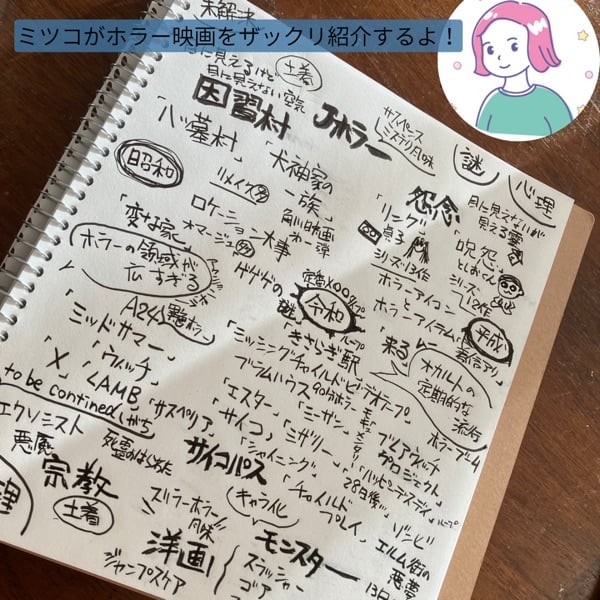 ミツコがホラー映画をザックリ紹介するよ！
未解決
土着
目に見えない空気
因習村
Jホラー
サスペンス
ミステリ風味
謎
心理
「八ツ墓村」
「犬神家の
一族」
角川映画
第一弾
昭和
リメイク多
ロケーション大事
オマージュ多
「変な家」
ホラーの領域が
広すぎる
怨念
目に見えないが
見える霊
「リング」
貞子
シリーズ13作
「呪怨」
としおくん
ホラーアイコン
とアイテム
平成
ゲゲゲの
謎
令和
「きさらぎ駅」
ループ
「来る」
オカルトの
定期的な
流行
ホラーブーム
A24
「ミッドサマー」
「X」
「ウィッチ」
「LAMB」
to be continedしがち
「ミッシングチャイルドビデオテープ」
ブラムハウス
90分ホラー
「エスター」
「ミーガン」
「サスペリア」
「サイコ」
「ミザリー」
「シャイニング」
「チャイルド
プレイ」
ブレアウィッチ
プロジェクト
「ハッピーデスデイ」
ループ
「28日後…」
ゾンビ
エルム街の
悪夢
13日
エクソシスト
悪魔
宗教
土着
理
サイコパス
スリラーホラー
風味
キャラ化
洋画
ジャンプスケア
モンスター
スラッシャー
ゴア